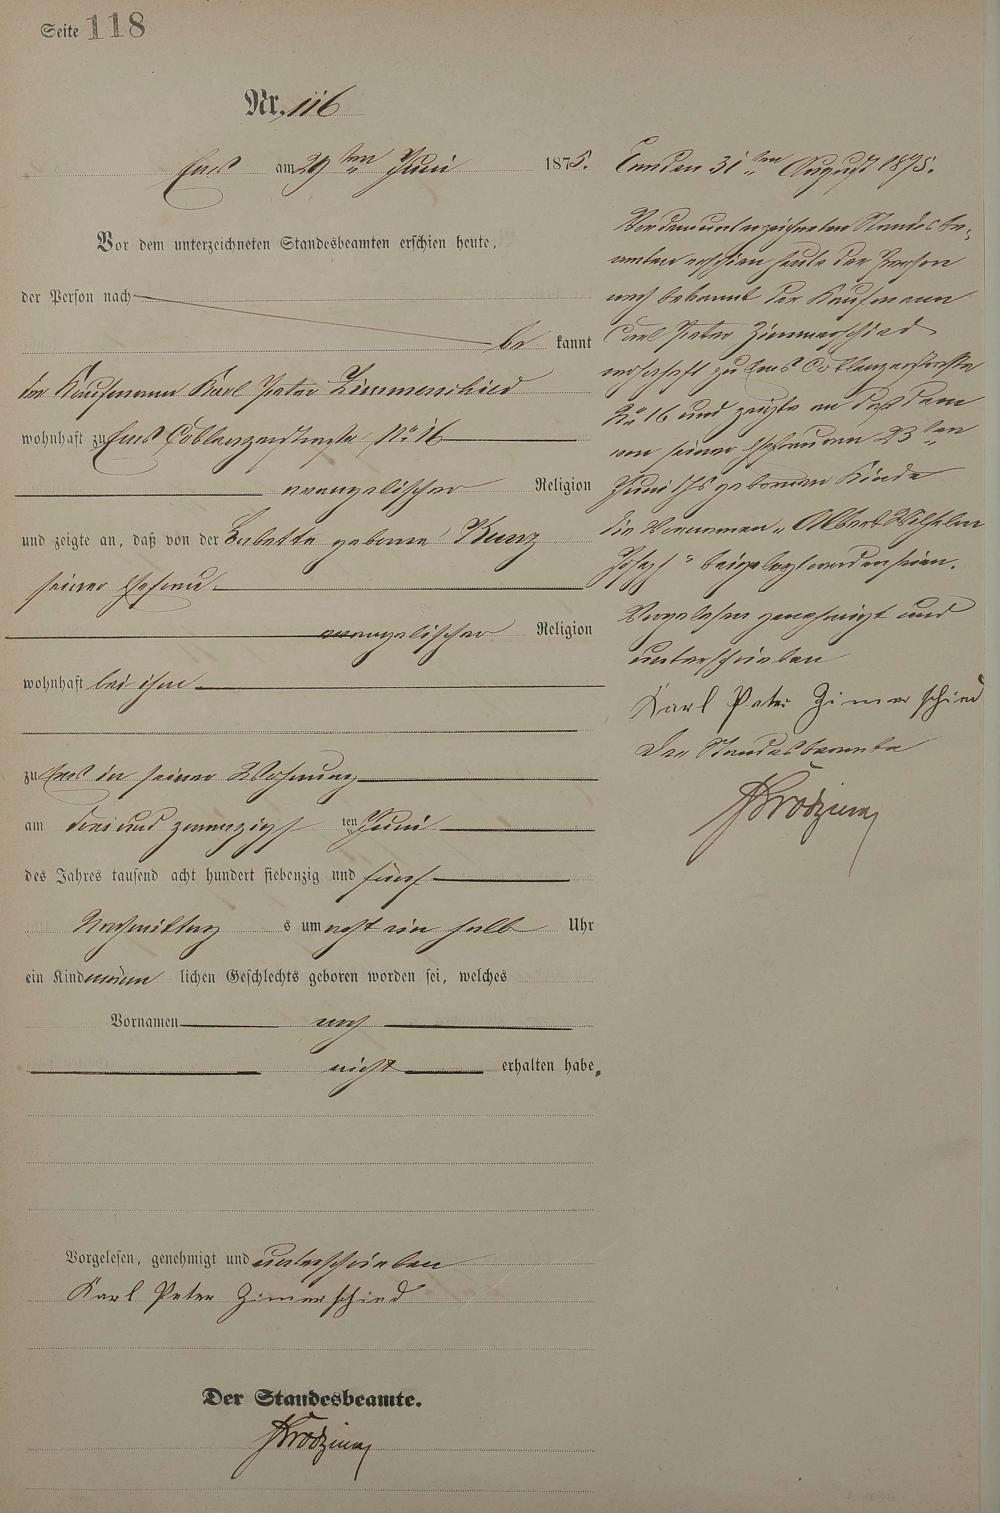 Seite 118
Nr. 116
Ems am 29ten Juni 1875.
Vor dem unterzeichneten Standesbeamten erschien heute,
der Person nach
be kannt
der Kaufmann Karl Peter Zimmerschied
wohnhaft zu Ems Coblenzerstraße No 16
evangelischer Religion
und zeigte an, daß von der Babette geborene Kunz
seiner Ehefrau
evangelischer Religion
wohnhaft bei ihm
zu Ems in seiner Wohnung
am drei und zwanzigst ten Juni
des Jahres tausend acht hundert siebenzig und fünf
Nachmittag s um acht ein halb Uhr
ein Kind männ lichen Geschlechts geboren worden sei, welches
Vornamen noch
nicht erhalten habe.
Vorgelesen, genehmigt und unterschrieben
Karl Peter Zimerschied
Der Standesbeamte.
Ems den 31ten August 1875.
Vor dem unterzeichneten Standesbe-
amten erschien heute der Person
nach bekannt der Kaufmann
Carl Peter Zimmerschied
wohnhaft zu Ems Coblenzerstraße
No 16 und zeigte an daß dem
von seiner Ehefrau am 23ten
Juni 1875 geborenen Kinde
die Vornamen „Albert Wilhelm
Joseph" beigelegt worden seien.
Vorgelesen genehmigt und
unterschrieben
Karl Peter Zimerschied
Der Standesbeamte